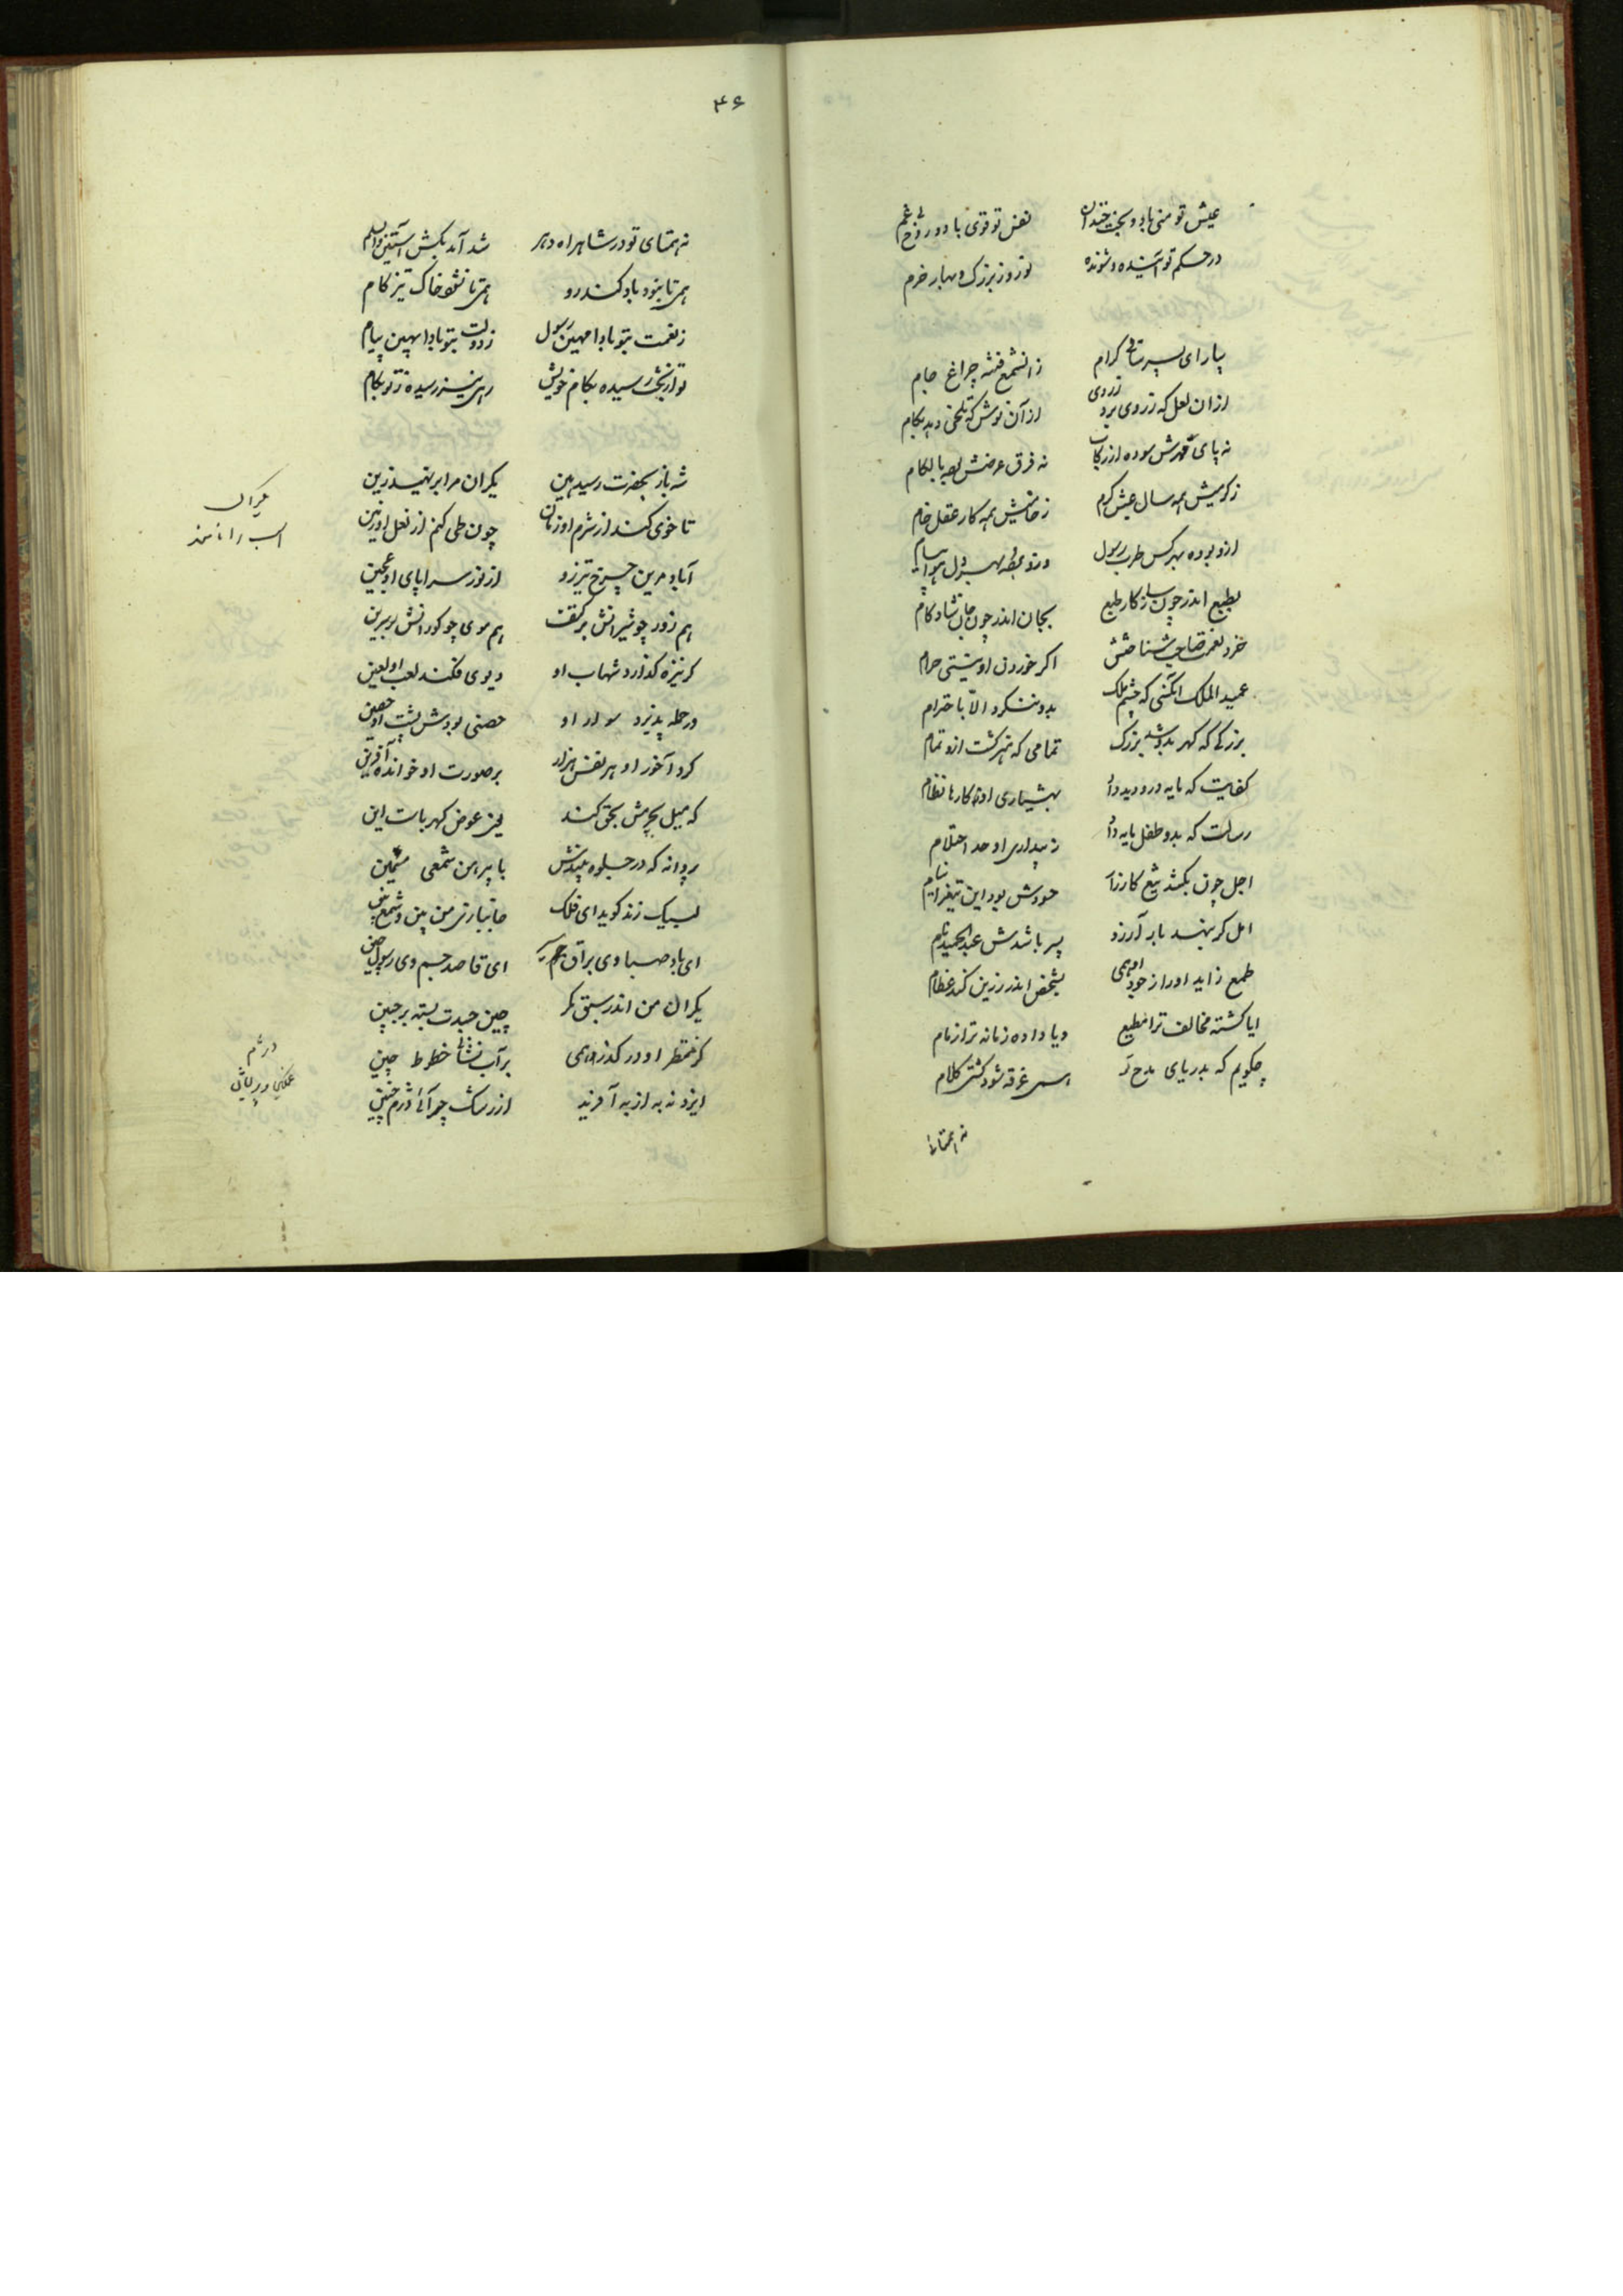 عیش تو هنی باد و بخت خندان نفس تو قوی باد و رخ بی غم
در حکم تو آینده و شونده نوروز بزرگ و بهار خرم
بیار ای پسر ساقی کرام از انشمع فتنه چراغ جام
از ان لعل که زردی برد زروی از آن نوش که تلخی دهد بکام
نه پای قهرش سوده از رکاب نه فرق عرضش لکام
زکرمیش همه سال عیش کرم زخامیش همه کار عقل خام
ازو بوده بهر کس طرب رسول
بطبع اندر چون سازکار طبع بجان اندر چون جان شادکام
خرد نعمت صاحب شناختش اکر خوردن او نیستی حرام
عمید الملک انکسی که چشم ملک بدو ننکرد الا باحترام
بزرکی که کهر بدو شد بزرک تمامی که هنر کشت ازو تمام
کفایت که مایه درو دید دأ بهشیاری او کارها نظام
رسالت که بدو طفل مایه دأ ز بیداری او حد احتلام
اجل چون بکشد تیغ کارزا خودش بود این تیغ را نیام
امل کر بنهد بار آرزو پسر باشدش عبد الحمید نام
طمع زاید او را از جود او همی بشخص اندر زرین کند عظام
ایا کشته مخالف ترا مطیع و یا داده زمانه ترا زمام
چکویم که بدریای مدح تو همی غرقه شود کشتی کلام
نه همتاء
۴۶
نه همتای تو در شاهراه دهر شد آمد بکش آستین
همی تا بنود باد کندرو همی تا نشود خاک تیز کام
ز نعمت بتو بادا مهین رسول ز دولت بتو بادا بهین پیام
تو از بخت رسیده بکام خویش رهی نیز رسیده ز تو بکام
شه باز بحضرت رسید هین یکران مرا برنهید زین
تا خوی کند از شرم او زمان چون طی کنم از نعل او زمین
آباد برین چرخ تیز رو از نوز سراپای او عجین
هم زور چو شیرانش بر کتف هم موی چو کورانش بر سرین
کر نیزه کذارد شهاب او دیوی فکند لعب او لعین
در حمله پذیرد سوار او حصنی بودش پشت او حصین
کرد آخور او هر نفس هزار بر صورت او خوانده آفرین
که میل بجرمش بحق کند بی عوض کهربات این
پروانه که در جلوه بیندش با پیرهن شمعی ثمین
لبیک زند کوید ای فلک جانبازی من بین و شمع بین
ای باد صبا وی براق جم ای قاصد جسم وی رسول
یکران من اندر سبق نکر چین حسدت بسته بر جبین
کر منتظر او در کذر همی بر آب نشانی خطوط چین
ایزد نه به از به آفرید از رشک چرائی دژم چنین
یکران
اسب را نامند
دژم
غمکین و پریشان